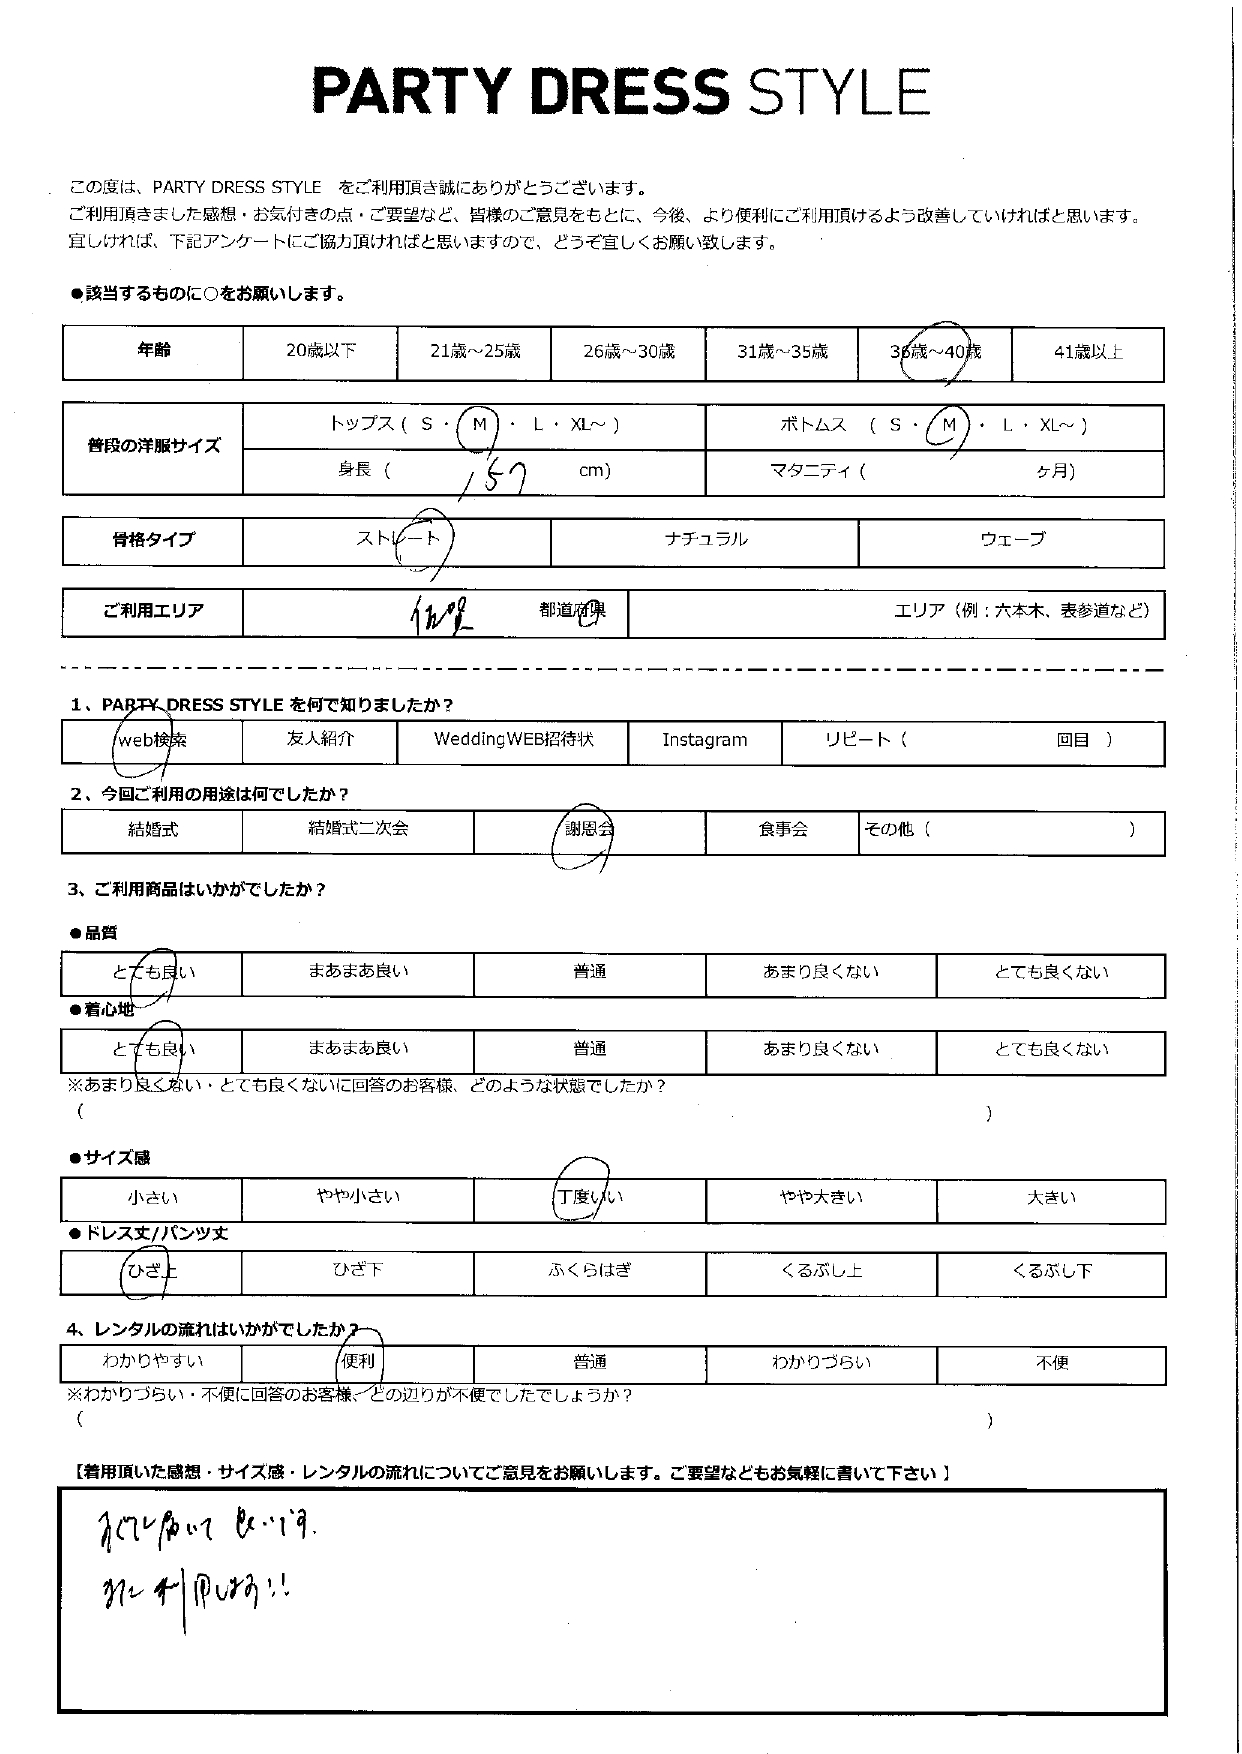 PARTY DRESS STYLE
この度は、PARTY DRESS STYLE をご利用頂き誠にありがとうございます。
ご利用頂きました感想・お気付きの点・ご要望など、皆様のご意見をもとに、今後、より便利にご利用頂けるよう改善していければと思います。
宜しければ、下記アンケートにご協力頂ければと思いますので、どうぞ宜しくお願い致します。
●該当するものに○をお願いします。
年齢 20歳以下 21歳～25歳 26歳～30歳 31歳～35歳 36歳～40歳 41歳以上
普段の洋服サイズ トップス ( S ・ M ・ L ・ XL～ ) ボトムス ( S ・ M ・ L ・ XL～ )
身長 ( 157 cm) マタニティ ( ヶ月)
骨格タイプ ストレート ナチュラル ウェーブ
ご利用エリア 都道府県 エリア（例：六本木、表参道など）
1、PARTY DRESS STYLE を何で知りましたか？
web検索 友人紹介 WeddingWEB招待状 Instagram リピート ( 回目 )
2、今回ご利用の用途は何でしたか？
結婚式 結婚式二次会 謝恩会 食事会 その他 ( )
3、ご利用商品はいかがでしたか？
●品質
とても良い まあまあ良い 普通 あまり良くない とても良くない
●着心地
とても良い まあまあ良い 普通 あまり良くない とても良くない
※あまり良くない・とても良くないに回答のお客様、どのような状態でしたか？
( )
●サイズ感
小さい やや小さい 丁度いい やや大きい 大きい
●ドレス丈/パンツ丈
ひざ上 ひざ下 ふくらはぎ くるぶし上 くるぶし下
4、レンタルの流れはいかがでしたか？
わかりやすい 便利 普通 わかりづらい 不便
※わかりづらい・不便に回答のお客様、どの辺りが不便でしたでしょうか？
( )
【着用頂いた感想・サイズ感・レンタルの流れについてご意見をお願いします。ご要望などもお気軽に書いて下さい 】
すぐに届いて 良いです.
また 利用します!!